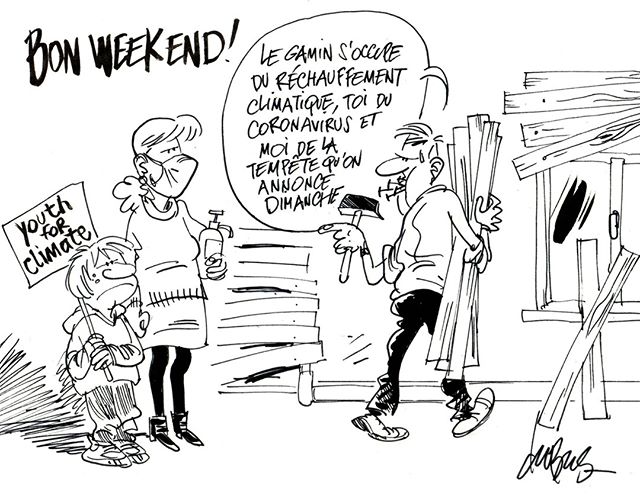 BON WEEKEND!
LE GAMIN S'OCCUPE
DU RÉCHAUFFEMENT
CLIMATIQUE, TOI DU
CORONAVIRUS ET
MOI DE LA
TEMPÊTE QU'ON
ANNONCE
DIMANCHE
youth
for
climate